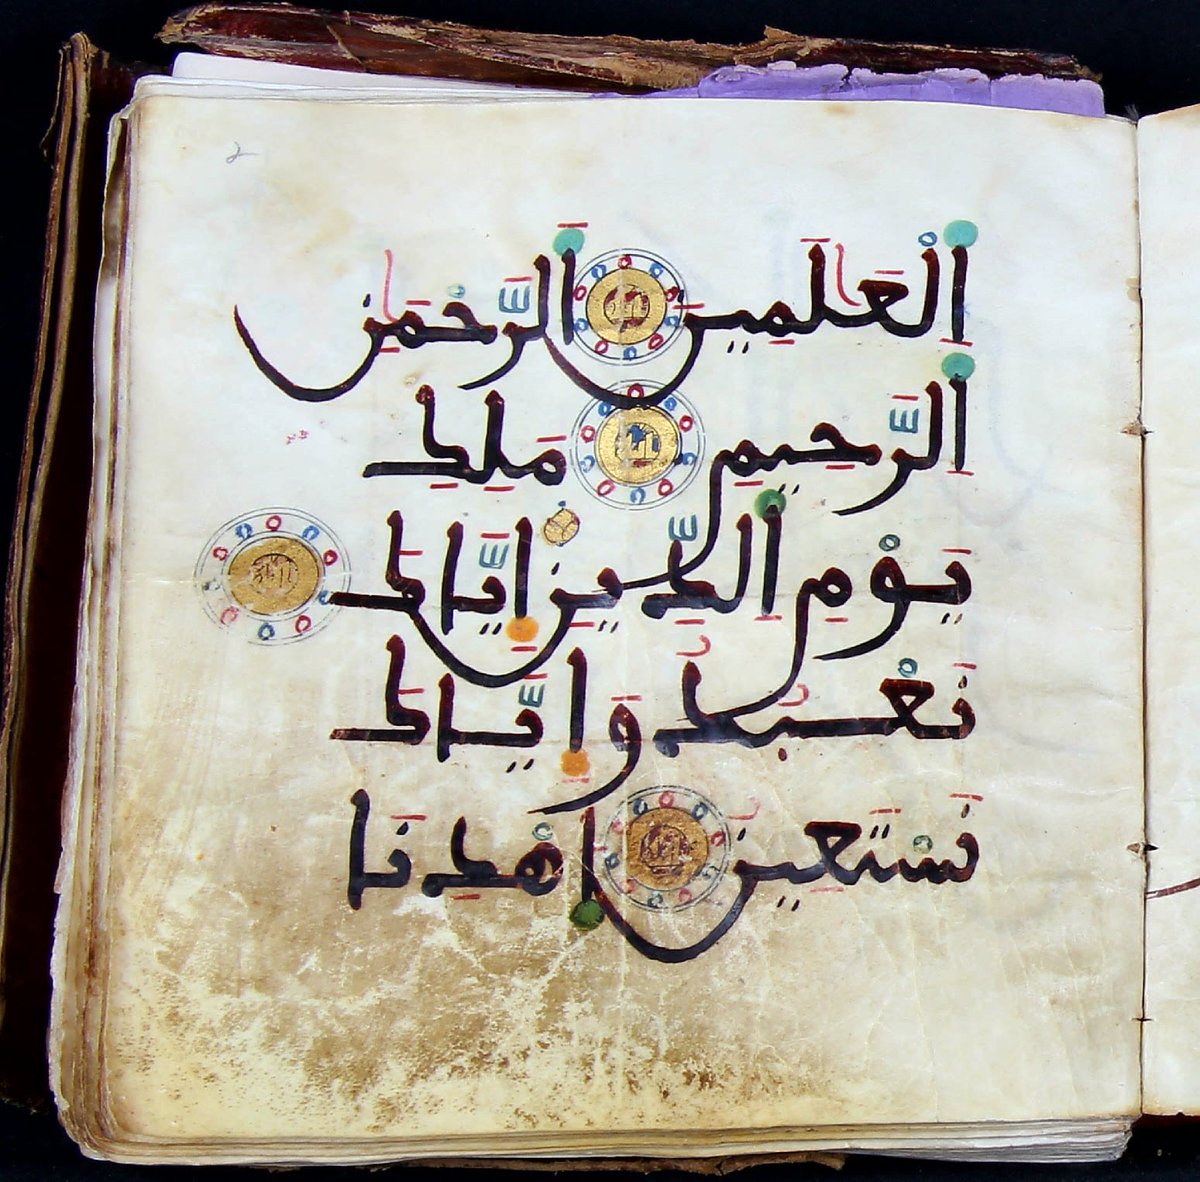 اَ۬لْعَٰلَمِينَ اَ۬لرَّحْمَٰنِ
اِ۬لرَّحِيمِ مَلِكِ
يَوْمِ اِ۬لدِّينِ إِيَّاكَ
نَعْبُدُ وَإِيَّاكَ
نَسْتَعِينُ اُ۪هْدِنَا